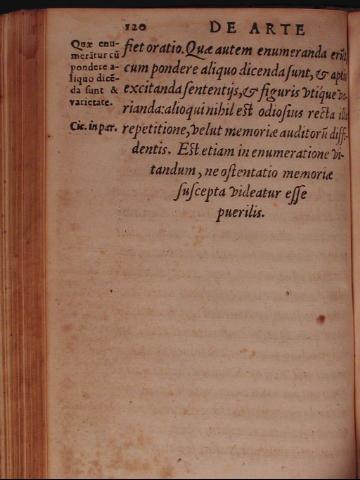 120 DE ARTE
Quæ enu-
merātur cū
pondere a-
liquo dicē-
da sunt &
varietate.
Cic. in par.
fiet oratio. Quæ autem enumeranda erūt,
cum pondere aliquo dicenda sunt, & aptis
excitanda sententijs, & figuris vtique va-
rianda: alioqui nihil est odiosius recta illa
repetitione, velut memoriæ auditorū diffi-
dentis. Est etiam in enumeratione vi-
tandum, ne ostentatio memoriæ
suscepta videatur esse
puerilis.